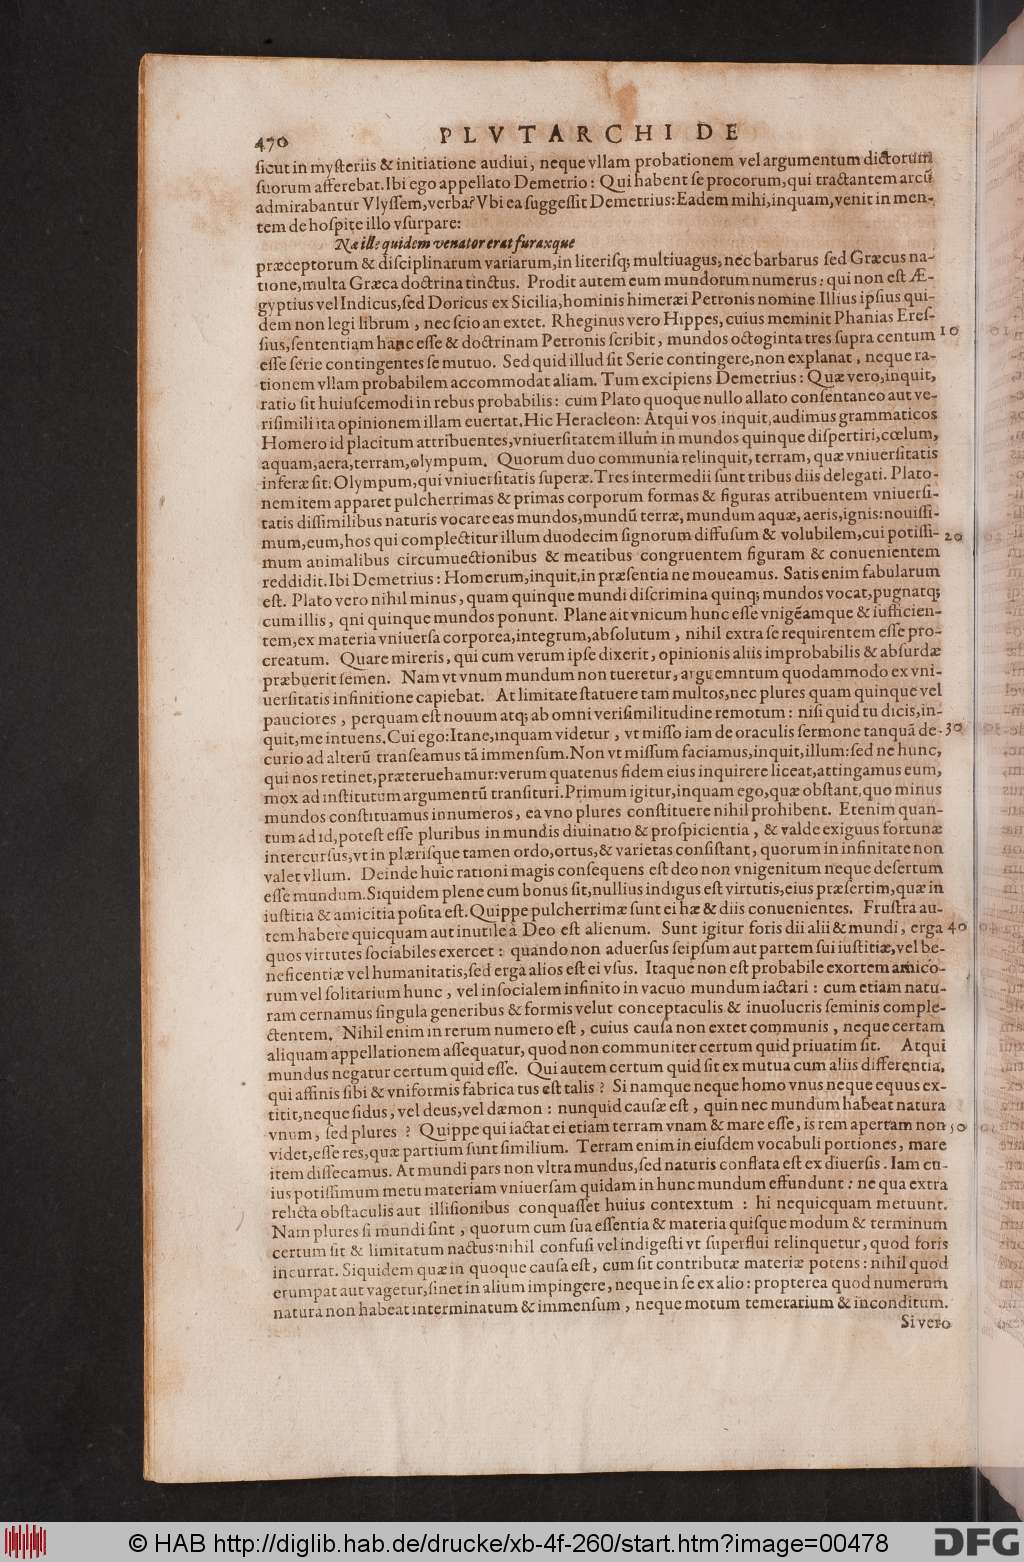 470 PLVTARCHI DE
ſicut in myſteriis & initiatione audiui, neque vllam probationem vel argumentum dictorum
ſuorum afferebat. Ibi ego appellato Demetrio: Qui habent ſe procorum, qui tractantem arcū
admirabantur Vlyſſem, verba? Vbi ea ſuggeſſit Demetrius: Eadem mihi, inquam, venit in men-
tem de hoſpite illo vſurpare:
Næ ille quidem venator erat furaxque
præceptorum & diſciplinarum variarum, in literiſq; multiuagus, nec barbarus ſed Græcus na-
tione, multa Græca doctrina tinctus. Prodit autem eum mundorum numerus: qui non eſt Æ-
gyptius vel Indicus, ſed Doricus ex Sicilia, hominis himeræi Petronis nomine Illius ipſius qui-
dem non legi librum, nec ſcio an extet. Rheginus vero Hippes, cuius meminit Phanias Ereſ-
ſius, ſententiam hanc eſſe & doctrinam Petronis ſcribit, mundos octoginta tres ſupra centum 10
eſſe ſerie contingentes ſe mutuo. Sed quid illud ſit Serie contingere, non explanat, neque ra-
tionem vllam probabilem accommodat aliam. Tum excipiens Demetrius: Quæ vero, inquit,
ratio ſit huiuſcemodi in rebus probabilis: cum Plato quoque nullo allato conſentaneo aut ve-
riſimili ita opinionem illam euertat, Hic Heracleon: Atqui vos inquit, audimus grammaticos
Homero id placitum attribuentes, vniuerſitatem illum in mundos quinque diſpertiri, cœlum,
aquam, aera, terram, olympum. Quorum duo communia relinquit, terram, quæ vniuerſitatis
inferæ ſit. Olympum, qui vniuerſitatis ſuperæ. Tres intermedii ſunt tribus diis delegati. Plato-
nem item apparet pulcherrimas & primas corporum formas & figuras atribuentem vniuerſi-
tatis diſſimilibus naturis vocare eas mundos, mundū terræ, mundum aquæ, aeris, ignis: nouiſſi-
mum, eum, hos qui complectitur illum duodecim ſignorum diffuſum & volubilem, cui potiſſi- 20
mum animalibus circumuectionibus & meatibus congruentem figuram & conuenientem
reddidit. Ibi Demetrius: Homerum, inquit, in præſentia ne moueamus. Satis enim fabularum
eſt. Plato vero nihil minus, quam quinque mundi diſcrimina quinq; mundos vocat, pugnatq;
cum illis, qni quinque mundos ponunt. Plane ait vnicum hunc eſſe vnigēamque & ſufficien-
tem, ex materia vniuerſa corporea, integrum, abſolutum, nihil extra ſe requirentem eſſe pro-
creatum. Quare mireris, qui cum verum ipſe dixerit, opinionis aliis improbabilis & abſurdæ
præbuerit ſemen. Nam vt vnum mundum non tueretur, arguemntum quodammodo ex vni-
uerſitatis infinitione capiebat. At limitate ſtatuere tam multos, nec plures quam quinque vel
pauciores, perquam eſt nouum atq; ab omni veriſimilitudine remotum: niſi quid tu dicis, in-
quit, me intuens. Cui ego: Itane, inquam videtur, vt miſſo iam de oraculis ſermone tanquā de- 30
curio ad alterū tranſeamus tā immenſum. Non vt miſſum faciamus, inquit, illum: ſed ne hunc,
qui nos retinet, præteruehamur: verum quatenus fidem eius inquirere liceat, attingamus eum,
mox ad inſtitutum argumentū tranſituri. Primum igitur, inquam ego, quæ obſtant, quo minus
mundos conſtituamus innumeros, ea vno plures conſtituere nihil prohibent. Etenim quan-
tum ad id, poteſt eſſe pluribus in mundis diuinatio & proſpicientia, & valde exiguus fortunæ
intercurſus, vt in plæriſque tamen ordo, ortus, & varietas conſiſtant, quorum in infinitate non
valet vllum. Deinde huic rationi magis conſequens eſt deo non vnigenitum neque deſertum
eſſe mundum. Siquidem plene cum bonus ſit, nullius indigus eſt virtutis, eius præſertim, quæ in
iuſtitia & amicitia poſita eſt. Quippe pulcherrimæ ſunt ei hæ & diis conuenientes. Fruſtra au-
tem habere quicquam aut inutile à Deo eſt alienum. Sunt igitur foris dii alii & mundi, erga 40
quos virtutes ſociabiles exercet: quando non aduerſus ſeipſum aut partem ſui iuſtitiæ, vel be-
neficentiæ vel humanitatis, ſed erga alios eſt ei vſus. Itaque non eſt probabile exortem amico-
rum vel ſolitarium hunc, vel inſocialem infinito in vacuo mundum iactari: cum etiam natu-
ram cernamus ſingula generibus & formis velut conceptaculis & inuolucris ſeminis comple-
ctentem. Nihil enim in rerum numero eſt, cuius cauſa non extet communis, neque certam
aliquam appellationem aſſequatur, quod non communiter certum quid priuatim ſit. Atqui
mundus negatur certum quid eſſe. Qui autem certum quid ſit ex mutua cum aliis differentia,
qui affinis ſibi & vniformis fabricatus eſt talis? Si namque neque homo vnus neque equus ex-
titit, neque ſidus, vel deus, vel dæmon: nunquid cauſæ eſt, quin nec mundum habeat natura
vnum, ſed plures? Quippe qui iactat ei etiam terram vnam & mare eſſe, is rem apertam non 50
videt, eſſe res, quæ partium ſunt ſimilium. Terram enim in eiuſdem vocabuli portiones, mare
item diſſecamus. At mundi pars non vltra mundus, ſed naturis conflata eſt ex diuerſis. Iam cu-
ius potiſſimum metu materiam vniuerſam quidam in hunc mundum effundunt: ne qua extra
relicta obſtaculis aut illiſionibus conquaſſet huius contextum: hi nequicquam metuunt.
Nam plures ſi mundi ſint, quorum cum ſua eſſentia & materia quiſque modum & terminum
certum ſit & limitatum nactus: nihil confuſi vel indigeſti vt ſuperflui relinquetur, quod foris
incurrat. Siquidem quæ in quoque cauſa eſt, cum ſit contributæ materiæ potens: nihil quod
erumpat aut vagetur, ſinet in alium impingere, neque in ſe ex alio: propterea quod numerum
natura non habeat interminatum & immenſum, neque motum temerarium & inconditum.
Si vero
© HAB http://diglib.hab.de/drucke/xb-4f-260/start.htm?image=00478 DFG